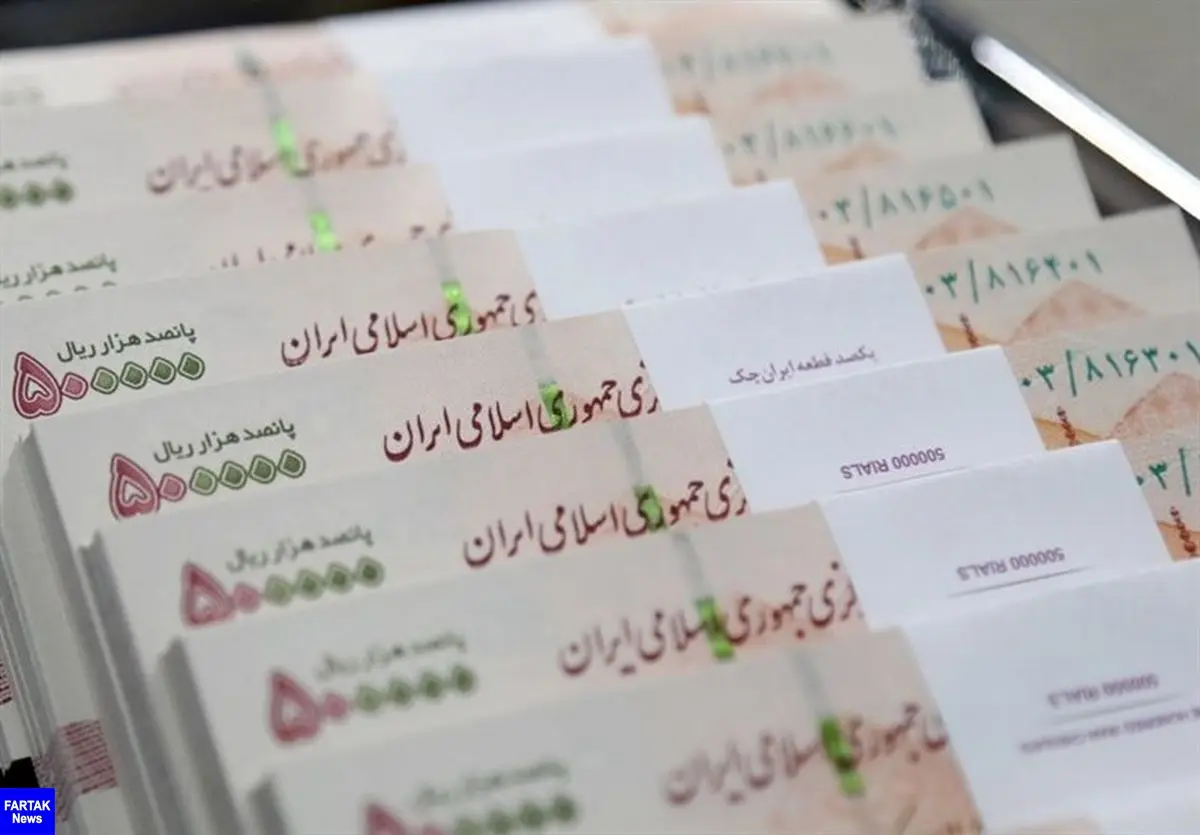 جمهوری اسلامی ایران
۰۳/۸۱۶۶۰۱
پانصد هزار ریال
۰۳/۸۱۶۵۰۱
پانصد هزار ریال
۵۰۰۰۰۰
ی جمهوری اسلامی ایران
۰۳/۸۱۶۴۰۱
یکصد قطعه ایران چک
پانصد هزار ریال
۵۰۰۰۰۰
زی جمهوری اسلامی ایران
۰۳/۸۱۶۳۰۱
500000 RIALS
پانصد هزار ریال
۵۰۰۰۰۰
زی جمهوری اسلامی ایران
۰۳/
500000 RIALS
پانصد هزار ریال
۵۰۰۰۰۰
زی جمهوری اسلامی ایران
500000 RIALS
پانصد هزار ریال
۵۰۰۰۰۰
جمهوری اسلامی ایران
FARTAK
News